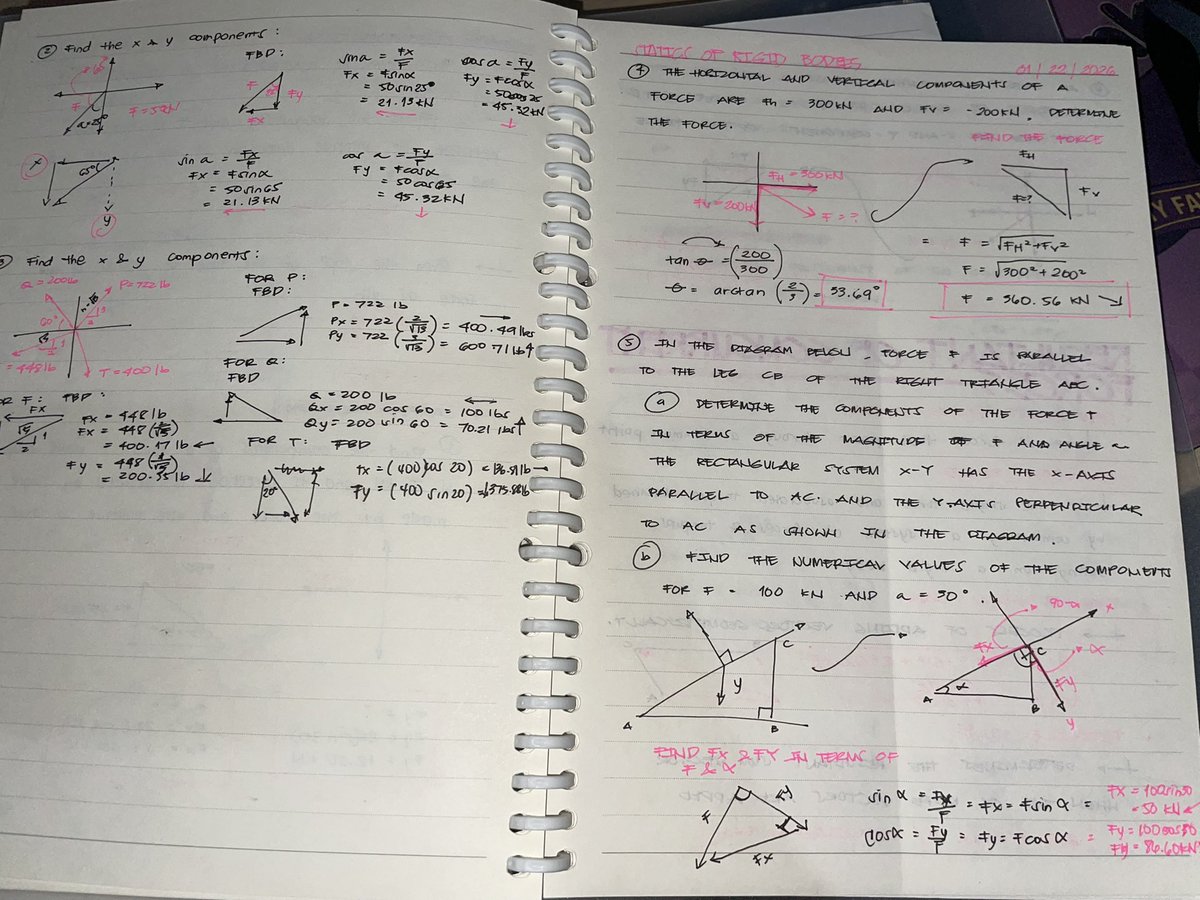 ② Find the x & y components:
FBD:
F = 50kN
α=25°
F
Fy
Fx
sinα = Fx/F
Fx = Fsinα
= 50 sin 25°
= 21.13 kN
cos α = Fy/F
Fy = Fcosα
= 50cos25
= 45.32kN
x
65°
y
sin α = Fx/F
Fx = Fsinα
= 50sin65
= 21.13 kN
cos α = Fy/F
Fy = Fcosα
= 50 cos65
= 45.32KN
Find the x & y components:
Q = 200lb
P=722 lb
60°
= 448 lb
T = 400 lb
FOR P:
FBD:
P= 722 lb
Px = 722 (2/√13) = 400.49 lbs
Py = 722 (3/√13) = 600 71 lb↑
FOR Q:
FBD
Q = 200 lb
Qx = 200 cos 60 = 100 lbs
Qy = 200 sin 60 = 70.21 lbs↑
OR F: FBD:
FX
√5
1
2
Fx = 448 lb
Fx = 448 (2/√5)
= 400.17 lb ←
Fy = 448 (1/√5)
= 200.35 lb ↓
FOR T: FBD
20°
Tx = (400)(cos 20) = 136.81lb→
Fy = (400 sin20) = 375.88lb
STATICS OF RIGID BODIES
01 / 22 / 2026
④ THE HORIZONTAL AND VERTICAL COMPONENTS OF A
FORCE ARE Fh = 300KN AND FV = -200KN. DETERMINE
THE FORCE.
FIND THE FORCE
FH = 300KN
FV = 200KN
F = ?
FH
F=?
FV
tan θ = (200/300)
θ = arctan (2/3) = 33.69°
= F = √FH²+FV²
F = √300² + 200²
F = 360.56 KN ↘
⑤ IN THE DIAGRAM BELOW, FORCE F IS PARALLEL
TO THE LEG CB OF THE RIGHT TRIANGLE ABC.
ⓐ DETERMINE THE COMPONENTS OF THE FORCE F
IN TERMS OF THE MAGNITUDE OF F AND ANGLE α
THE RECTANGULAR SYSTEM X-Y HAS THE X-AXIS
PARALLEL TO AC. AND THE Y-AXIS PERPENDICULAR
TO AC AS SHOWN IN THE DIAGRAM.
ⓑ FIND THE NUMERICAL VALUES OF THE COMPONENTS
FOR F = 100 KN AND α = 30°.
A
B
C
y
90-α
x
Fx
C
α
Fy
A
α
B
y
FIND FX & FY IN TERMS OF
F & α
F
Fy
Fx
sin α = Fx/F = Fx = Fsin α =
Fx = 100sin30
= 50 KN
cosα = Fy/F = Fy = Fcosα =
Fy = 100cos30
Fy = 86.60KN